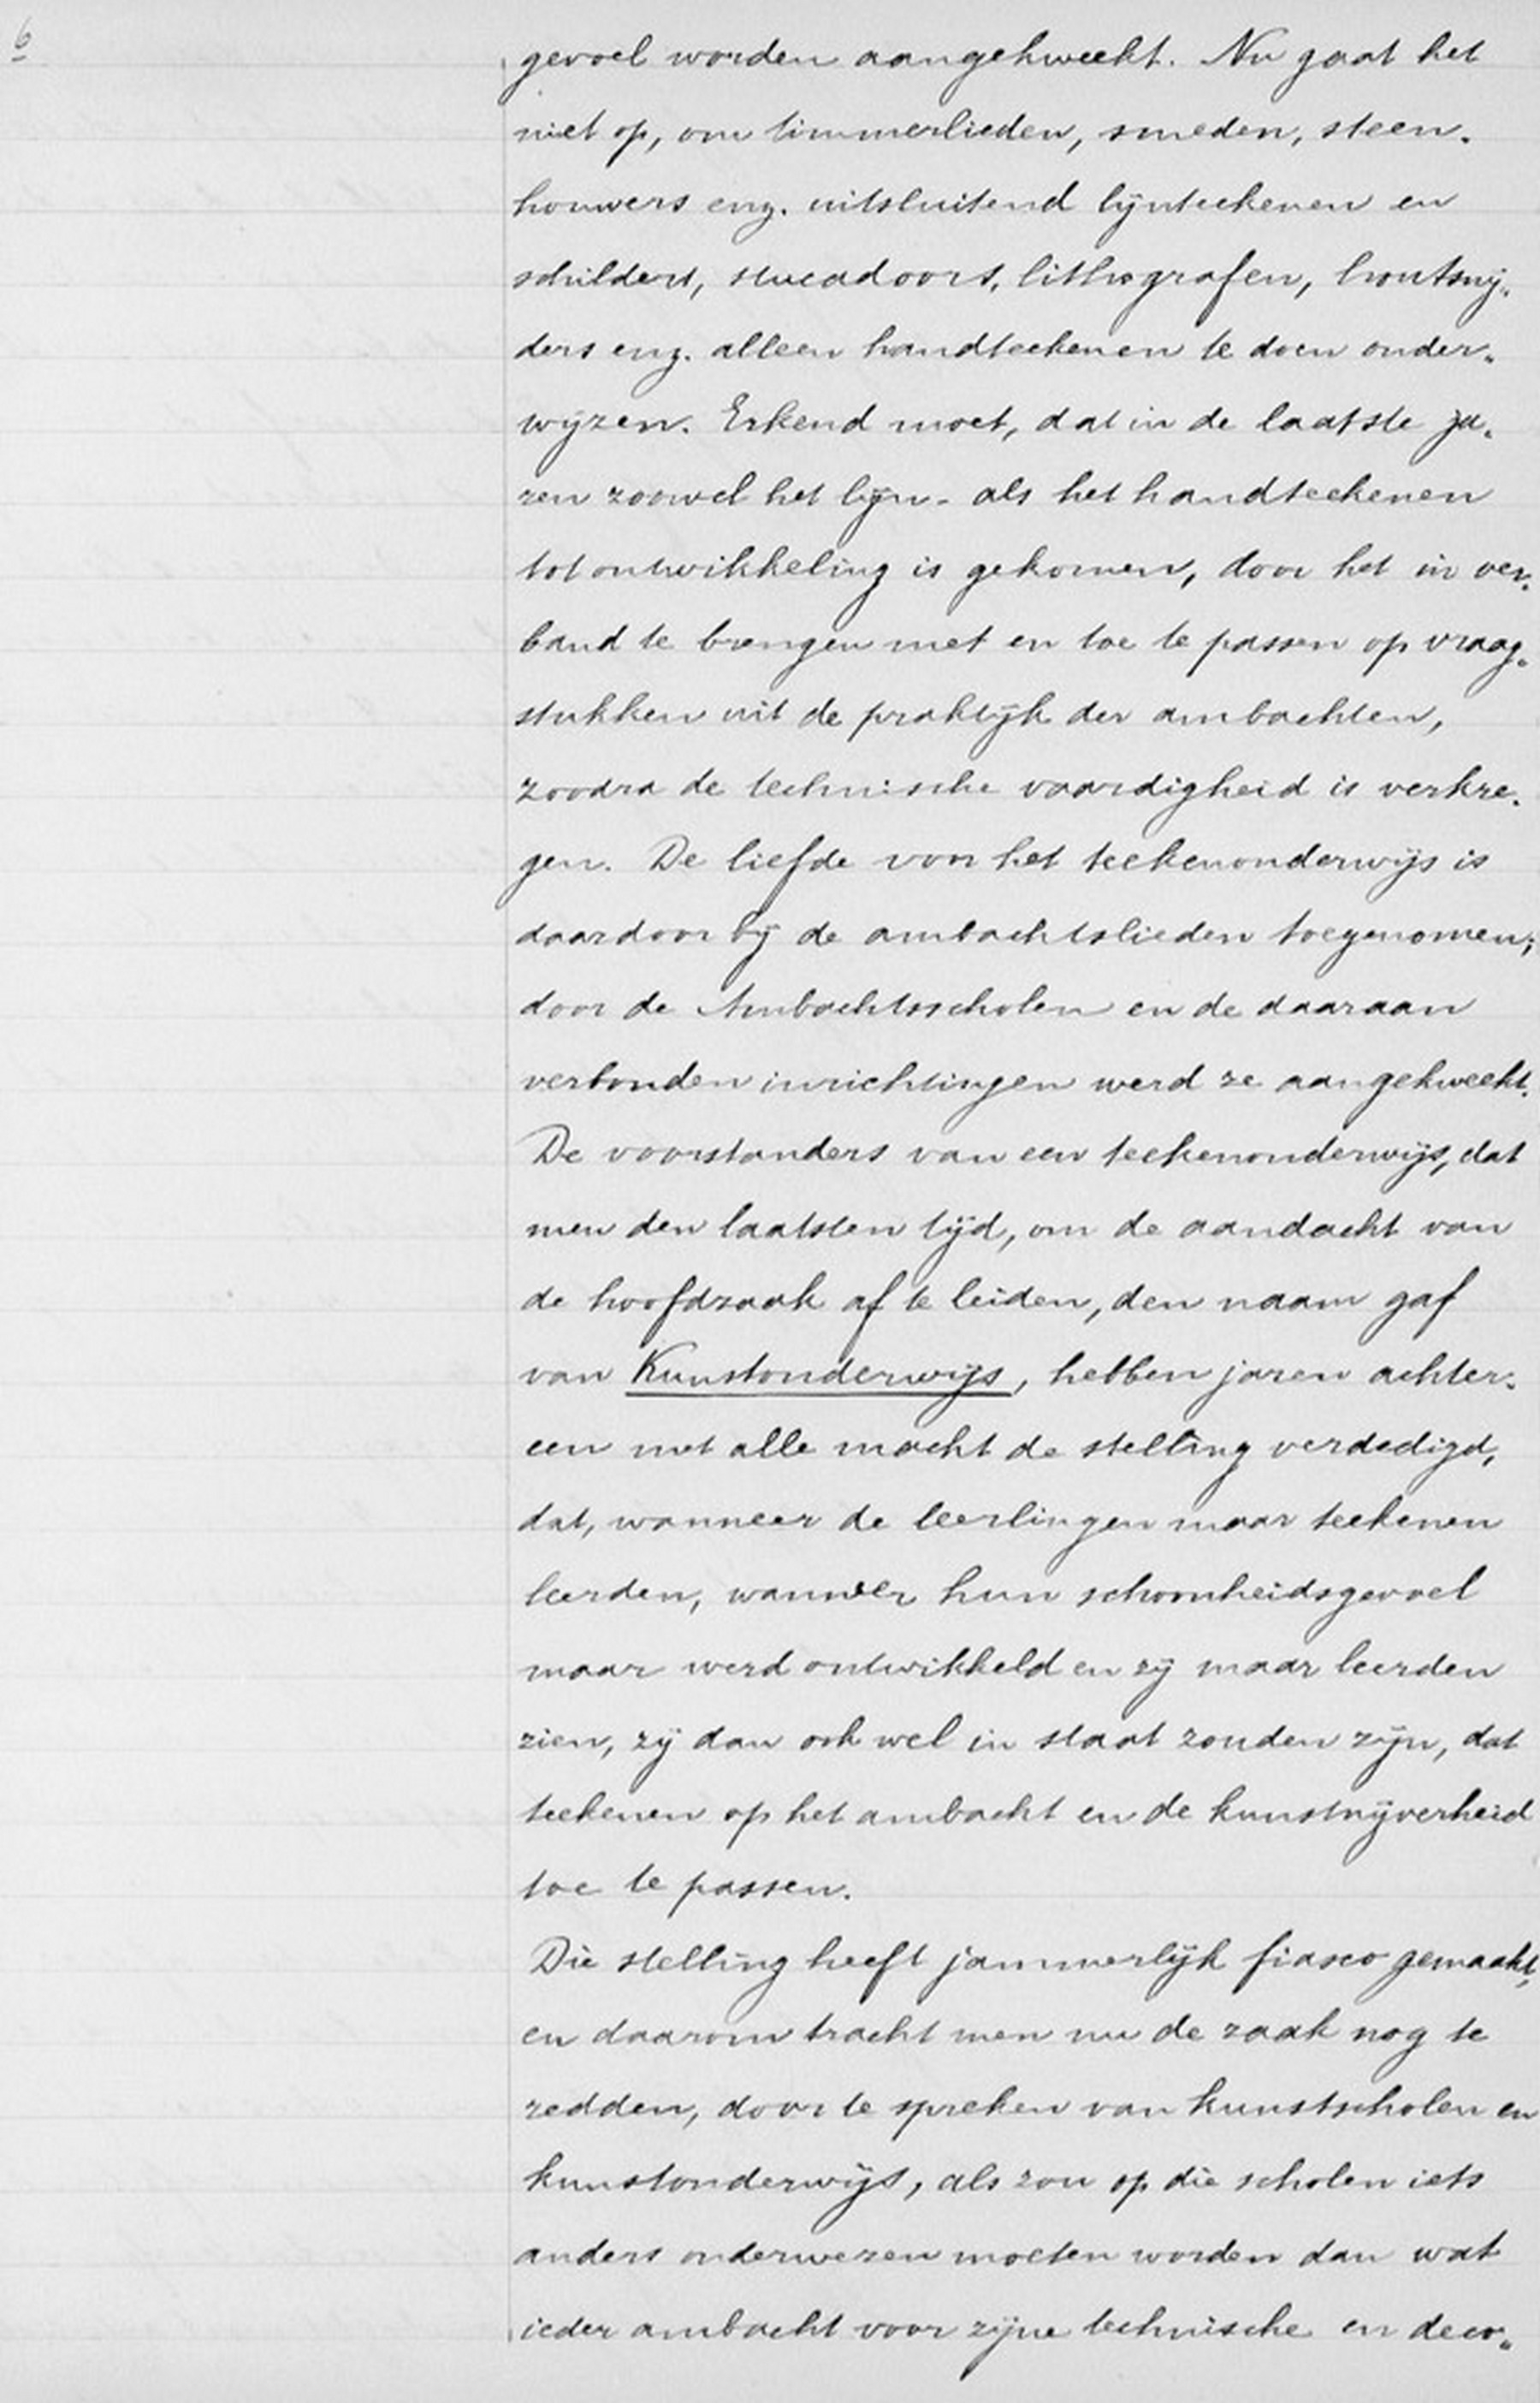 6
gevoel worden aangekweekt. Nu gaat het
niet op, om timmerlieden, smeden, steen-
houwers enz. uitsluitend lijnteekenen en
schilders, stucadoors, lithografen, houtsnij-
ders enz. alleen handteekenen te doen onder-
wijzen. Erkend moet, dat in de laatste ja-
ren zoowel het lijn- als het handteekenen
tot ontwikkeling is gekomen, door het in ver-
band te brengen met en toe te passen op vraag-
stukken uit de praktijk der ambachten,
zoodra de technische vaardigheid is verkre-
gen. De liefde voor het teekenonderwijs is
daardoor bij de ambachtslieden toegenomen;
door de Ambachtsscholen en de daaraan
verbonden inrichtingen werd ze aangekweekt.
De voorstanders van een teekenonderwijs, dat
men den laatsten tijd, om de aandacht van
de hoofdzaak af te leiden, den naam gaf
van Kunstonderwijs, hebben jaren achter-
een met alle macht de stelling verdedigd,
dat, wanneer de leerlingen maar teekenen
leerden, wanneer hun schoonheidsgevoel
maar werd ontwikkeld en zij maar leerden
zien, zij dan ook wel in staat zouden zijn, dat
teekenen op het ambacht en de kunstnijverheid
toe te passen.
Die stelling heeft jammerlijk fiasco gemaakt,
en daarom tracht men nu de zaak nog te
redden, door te spreken van kunstscholen en
kunstonderwijs, als zou op die scholen iets
anders onderwezen moeten worden dan wat
ieder ambacht voor zijne technische en deco-